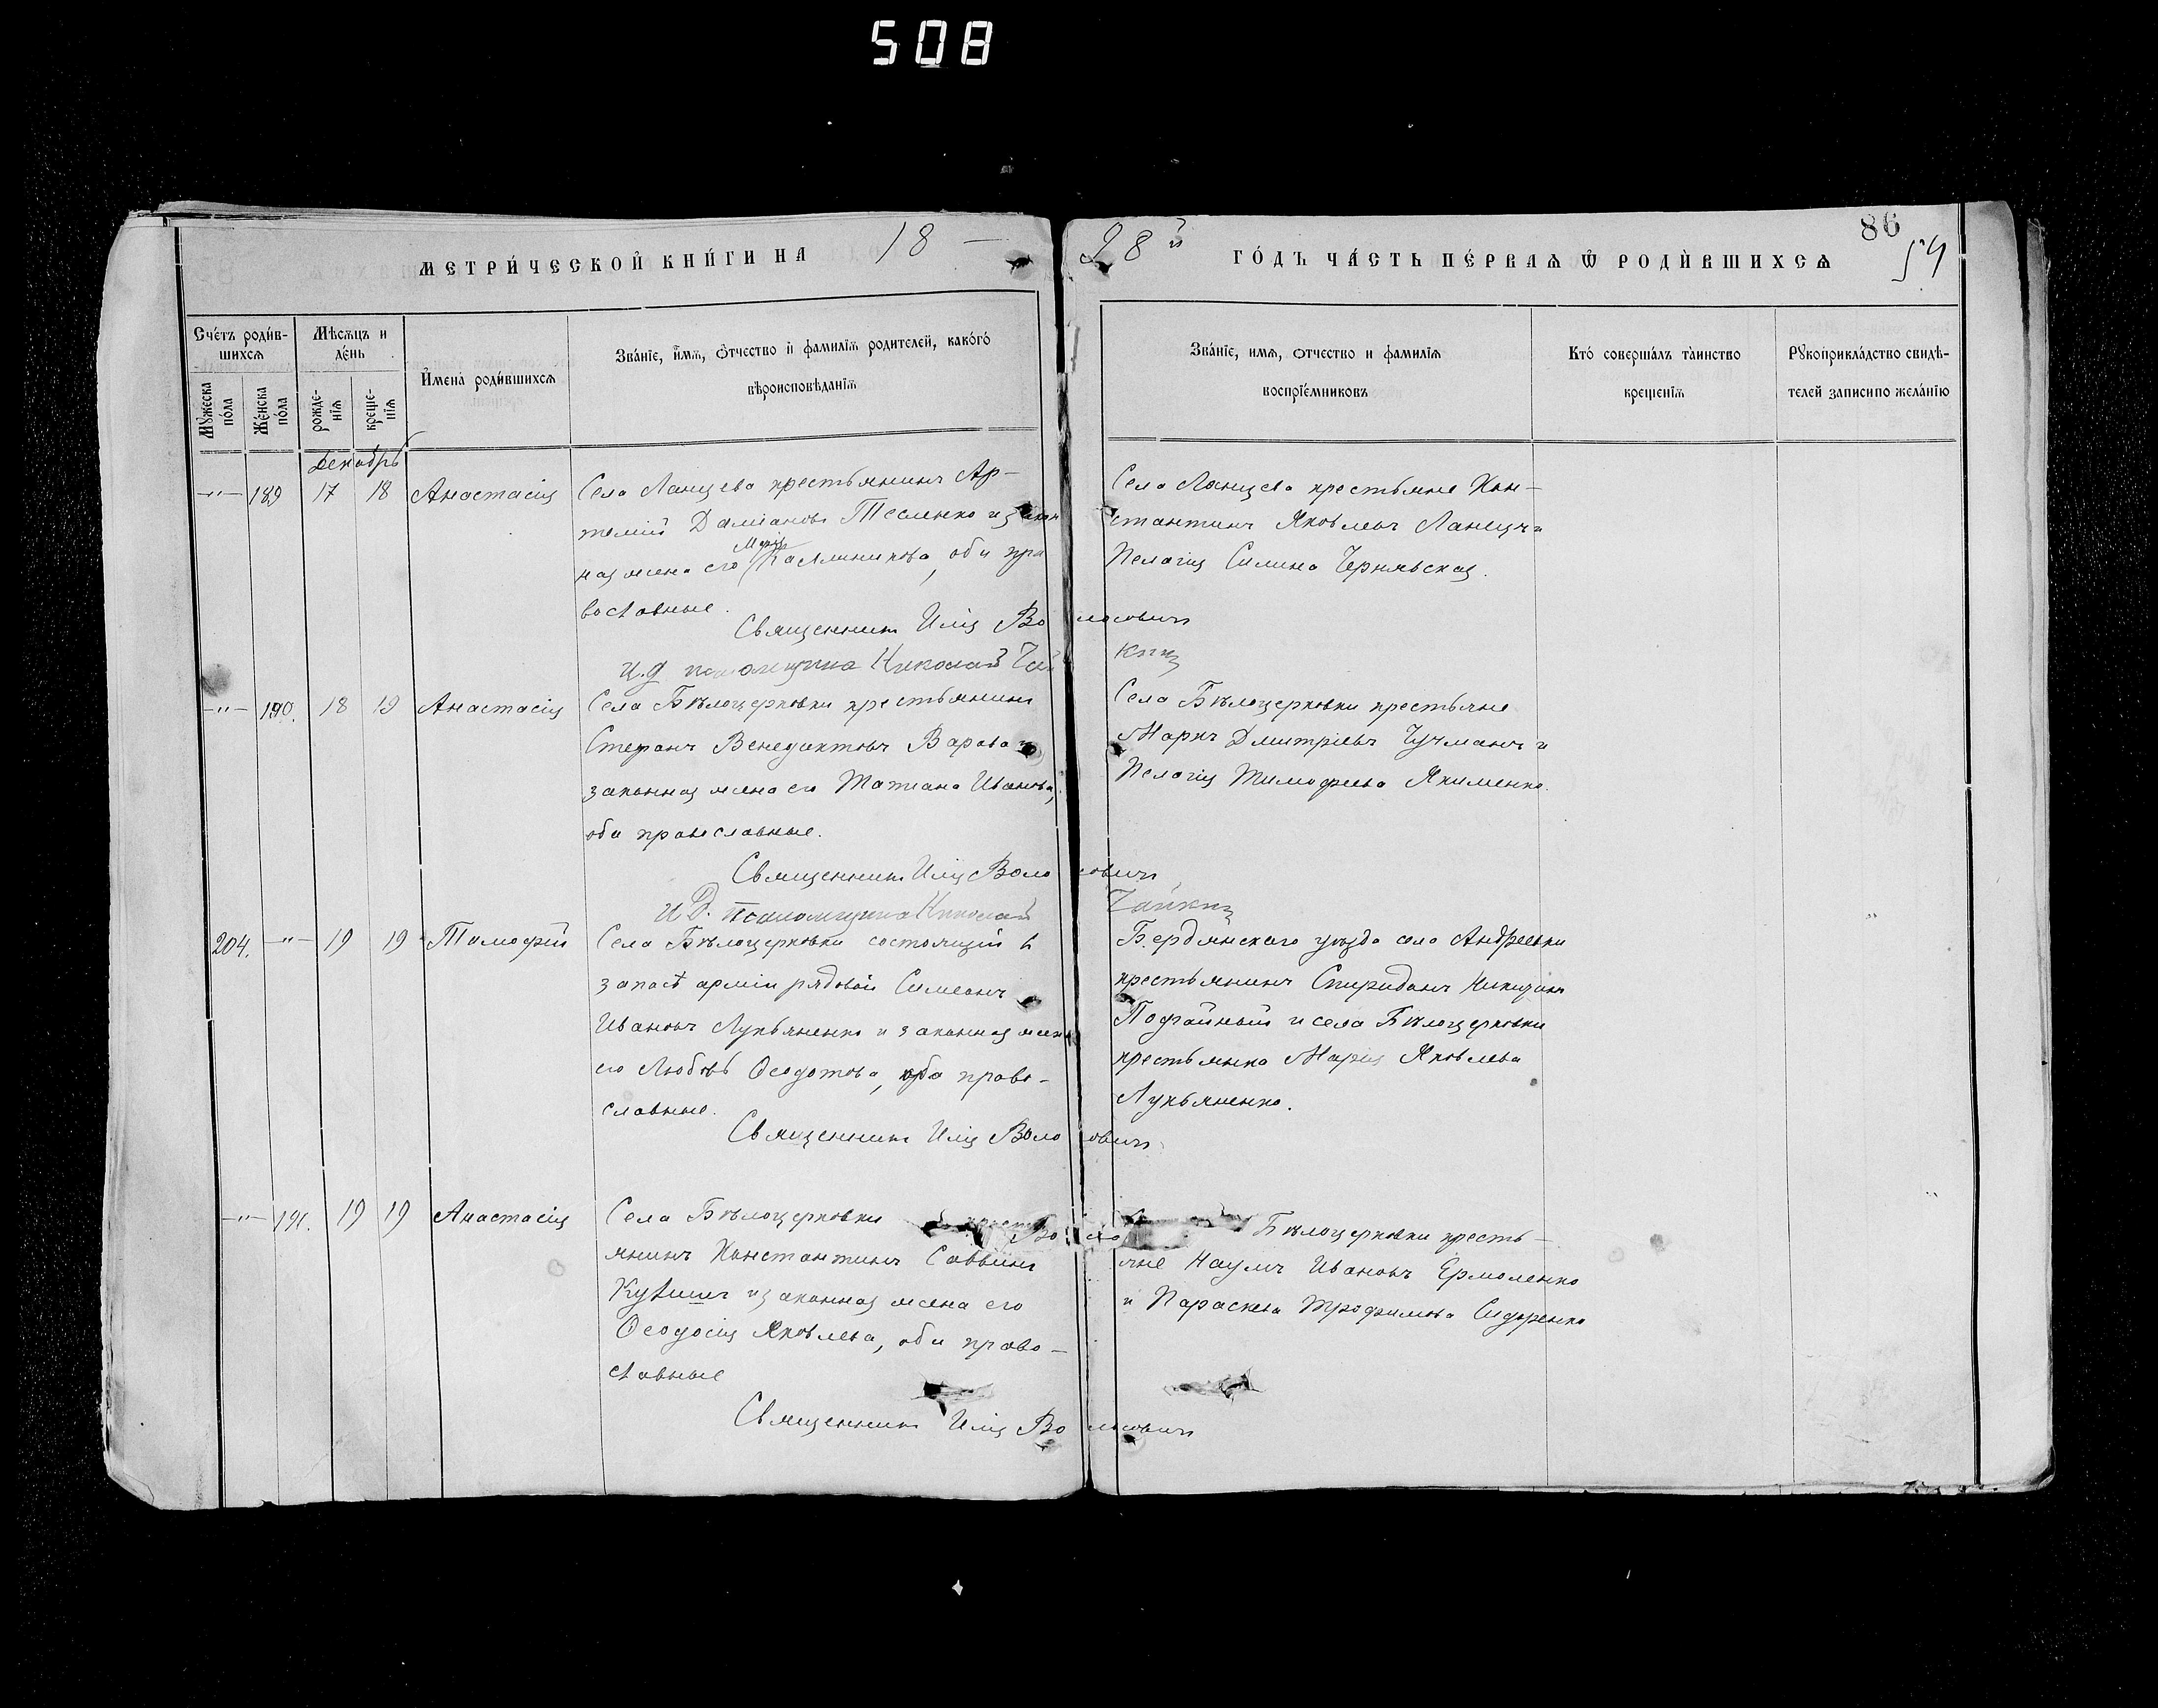 508
86
54
МЕТРИ́ЧЕСКОЙ КНИ́ГИ НА 18 — 98й ГО́ДЪ ЧА́СТЬ ПЕ́РВАѦ Ѡ РОДИ́ВШИХСѦ
Сче́тъ роди́в-
шихсѧ
Мѣсѧцъ и
де́нь
Мꙋжеска
по́ла
Же́нска
по́ла
рожде-
нїѧ
креще-
нїѧ
И҆мена̀ роди́вшихсѧ
Зва́нїе, и҆́мѧ, ѻ҆́тчество и҆ фамилїѧ родителей, како́гѡ
вѣроисповѣданїѧ
Зва́нїе, имѧ, отчество и фамилїѧ
воспрїе́мниковъ
Кто́ соверша́лъ та̀инство
крещенїѧ
Рꙋкоприкла́дство свидѣ-
телей записи по жела́нїю
Декабрь
—"— 189 17 18 Анастасія
Села Ланцева крестьянинъ Ар-
темій Даміановъ Тесленко и закон
ная жена его Марія Каллиникова, оба пра
вославные.
Села Ланцева крестьяне Кон-
стантинъ Яковлевъ Ланецъ и
Пелагія Силина Чернявская.
Священникъ Илія Волосовичъ
И.д псаломщика Николай Чайкия
—"— 190. 18 19 Анастасія
Села Бѣлоцерковки крестьянинъ
Стефанъ Венедиктовъ Варава и
законная жена его Татиана Иванова,
оба православные.
Села Бѣлоцерковки крестьяне
Маркъ Дмитріевъ Чучманъ и
Пелагія Тимофеева Якименко.
Священникъ Илія Волосовичъ
И.Д. Псаломщика Николай
204. —"— 19 19 Тимофей
Села Бѣлоцерковки состоящій в
запасѣ арміи рядовой Симеонъ
Ивановъ Лукьяненко и законная жена
его Любовь Ѳеодотова, оба право-
славные.
Бердянскаго уѣзда села Андреевки
крестьянинъ Спиридонъ
и села Бѣлоцерковки
крестьянка Марія Яковлева
Лукьяненко.
Священникъ Илія Волосовичъ
—"— 191. 19 19 Анастасія
Села Бѣлоцерковки кресть
янинъ Константинъ Саввинъ
и законная жена его
Ѳеодосія Яковлева, оба право-
славные
Бѣлоцерковки кресть-
яне Наумъ Ивановъ Ермоленко
и Параскева Трофимова Сидоренко
Священникъ Илія Волосовичъ